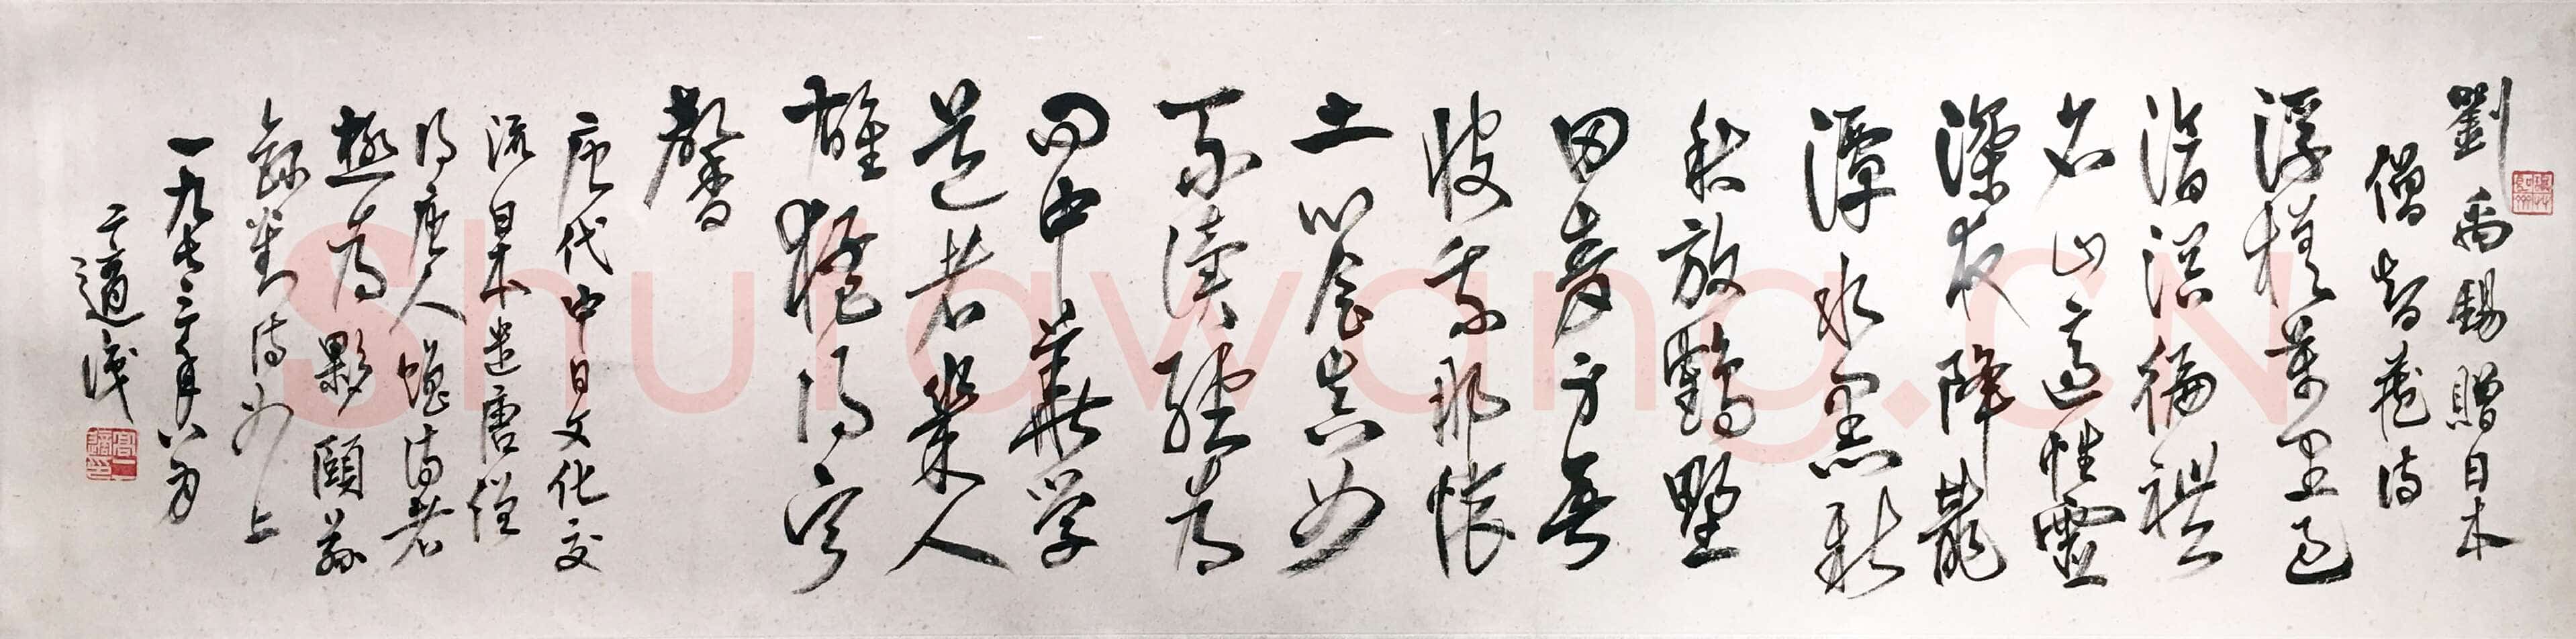 劉禹錫贈日本
僧智藏詩
浮槎萬里過
滄溟徧禮
名山適性靈
深夜降龍
潭水黑新
秋放鶴野
田青身無
彼我那懷
土心會真如
不讀經為
問中華学
道者幾人
雄猛得寧
馨
唐代中日文化交
流日本遣唐僧
得唐人贈詩者
極為夥頤茲
錄劉詩如上
一九七三年八月
二適識
Shufawang.CN